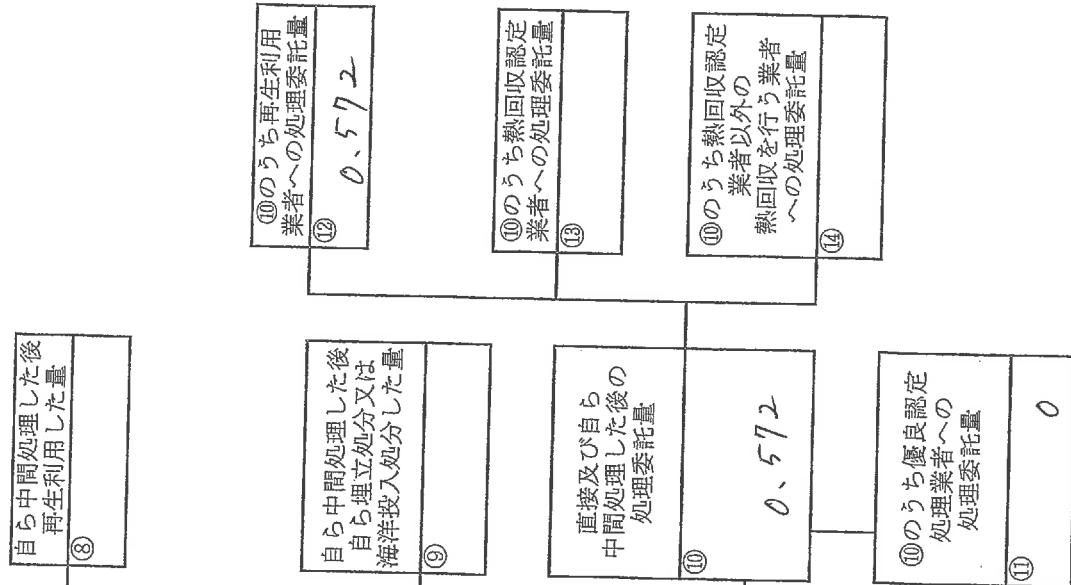 自ら中間処理した後
再生利用した量
⑧
自ら中間処理した後
自ら埋立処分又は
海洋投入処分した量
⑨
直接及び自ら
中間処理した後の
処理委託量
⑩
0、572
⑩のうち優良認定
処理業者への
処理委託量
⑪
0
⑩のうち再生利用
業者への処理委託量
⑫
0、572
⑩のうち熱回収認定
業者への処理委託量
⑬
⑩のうち熱回収認定
業者以外の
熱回収を行う業者
への処理委託量
⑭